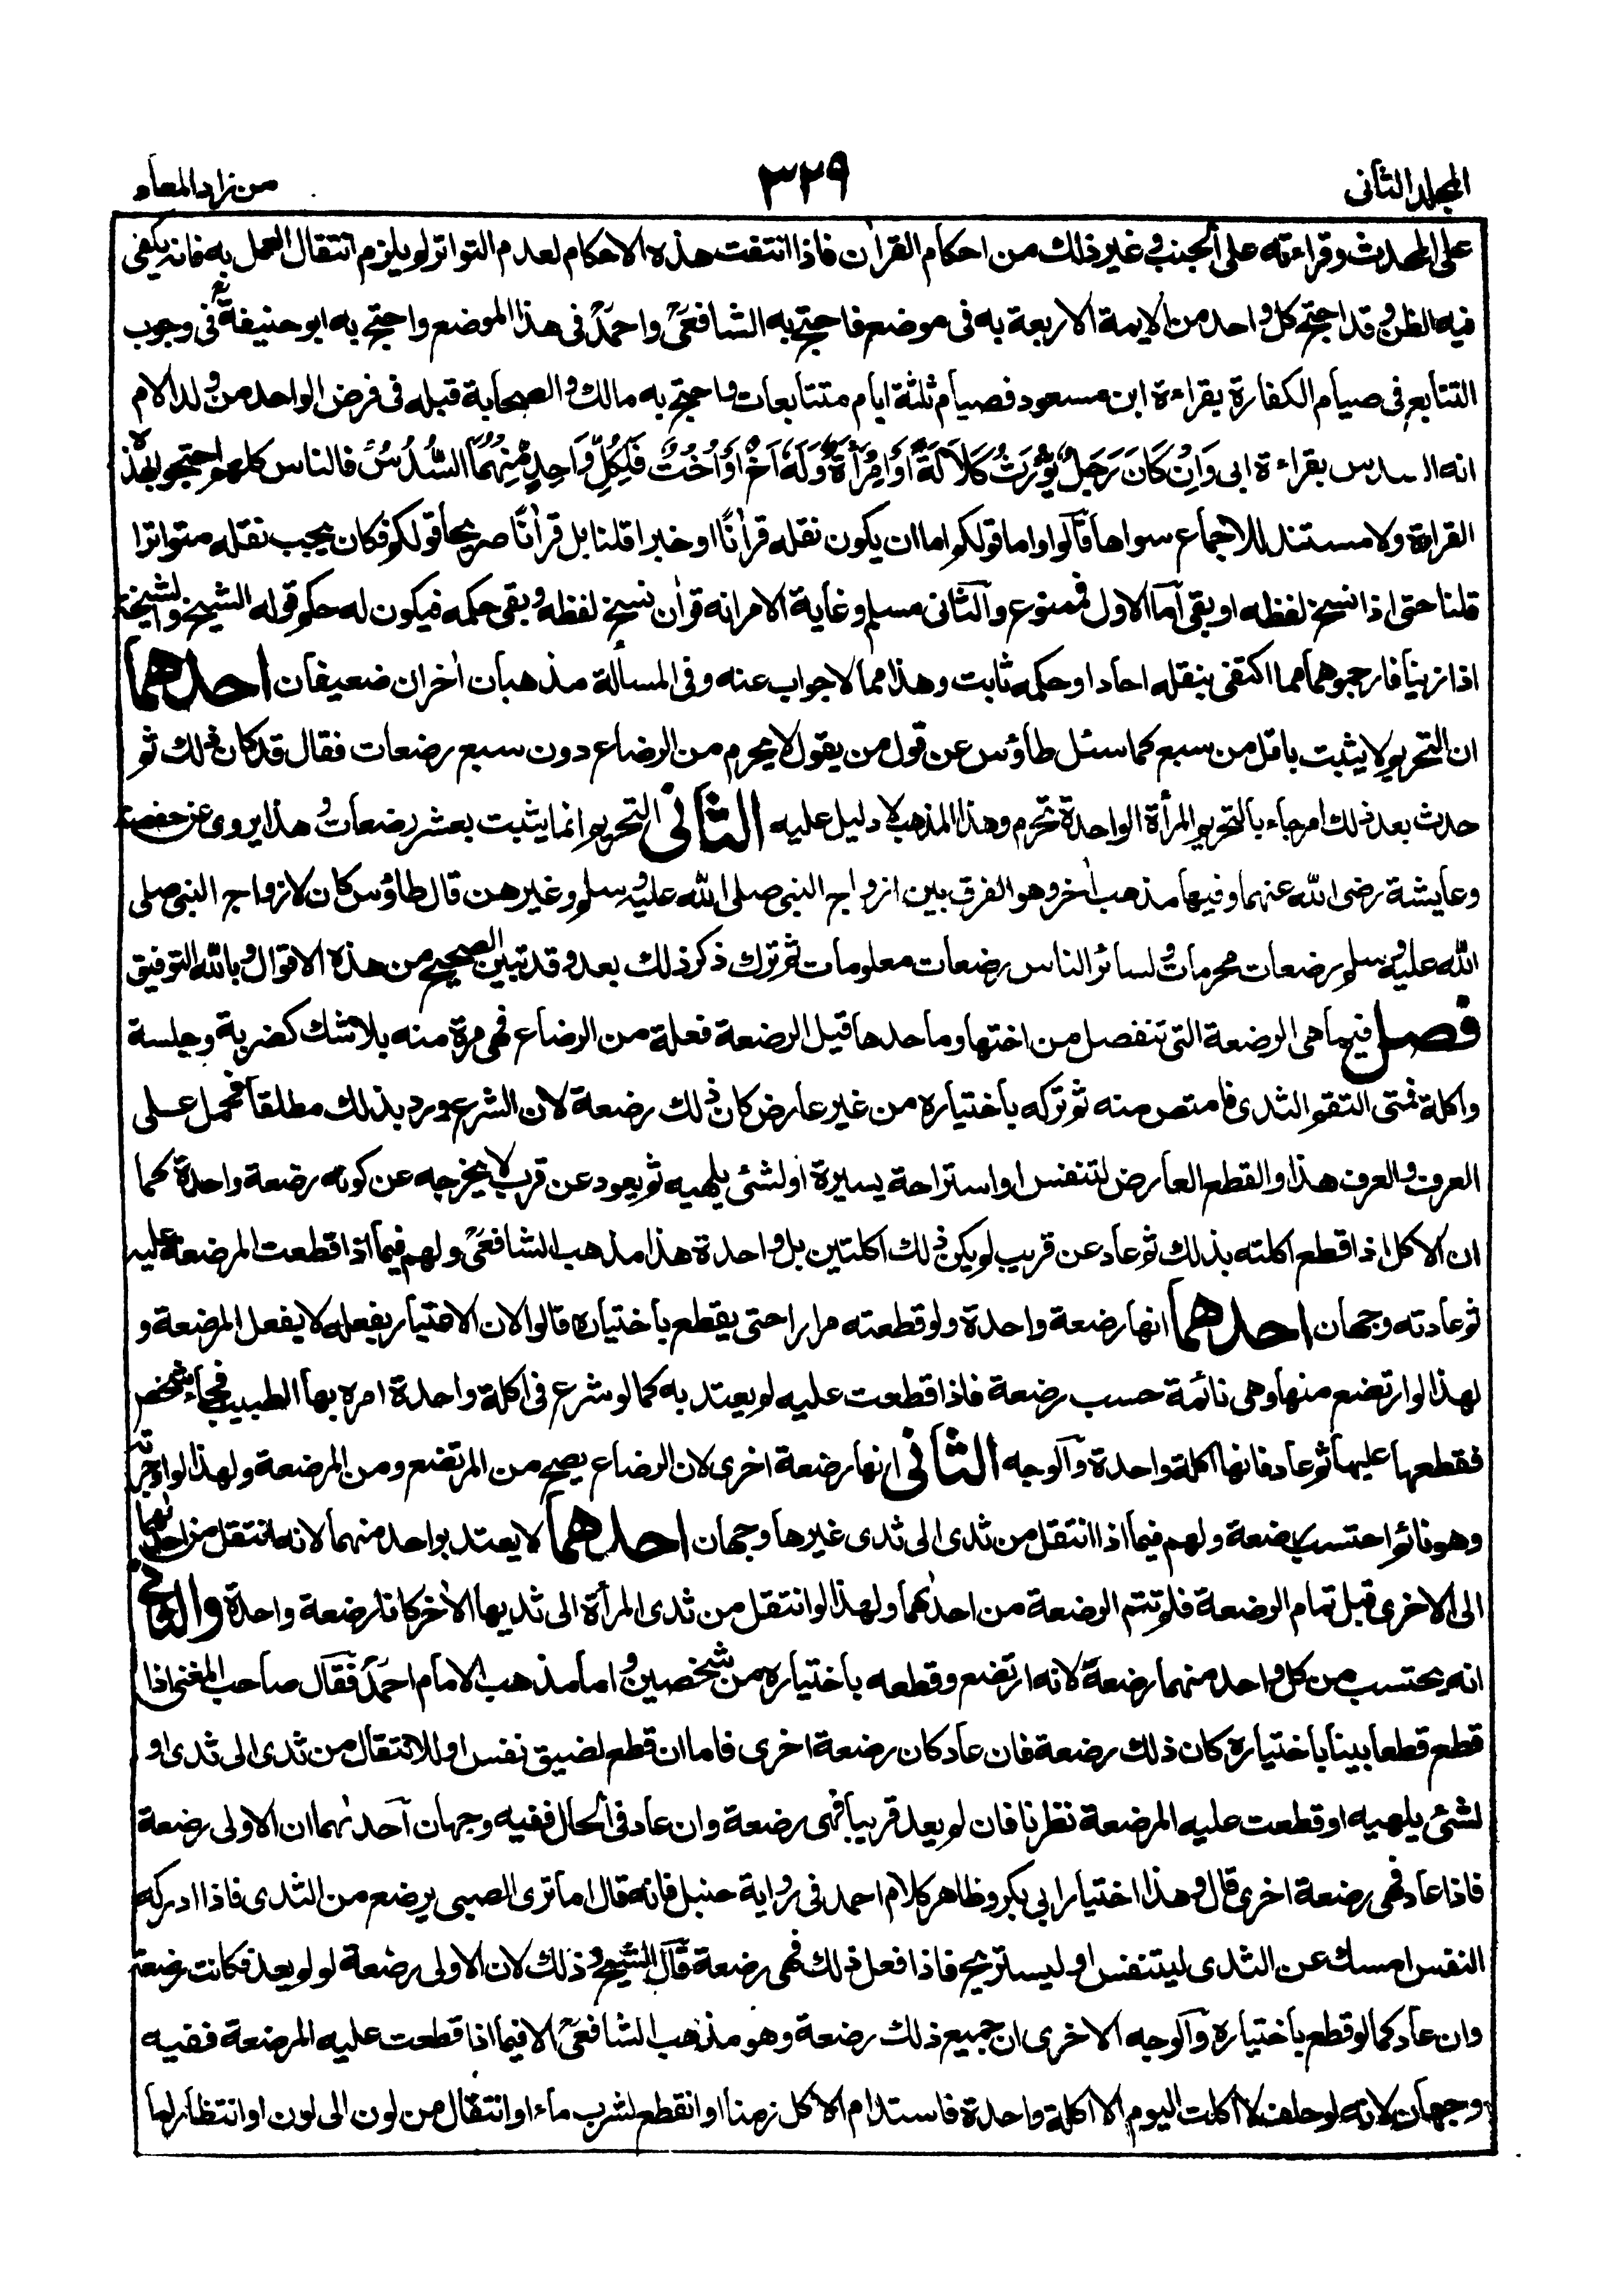 المجلد الثانى
٣٢٩
من زاد المعاد
على المحدث وقراءته على الجنب و غير ذلك من احكام القرأن فاذا انتفت هذه الاحكام لعدم التواتر لم يلزم انتقال العمل به فانه يكفى
فيه الظن وقد احتج كل واحد من الايمة الاربعة به فى موضع فاحتج به الشافعىؒ واحمدؒ فى هذا الموضع واحتج به ابو حنيفةؒ فى وجوب
التتابع فى صيام الكفارة بقراءة ابن مسعود فصيام ثلثة ايام متتابعات واحتج به مالك والصحابة قبله فى فرض الواحد من ولد الام
انه السدس بقراءة ابى وَاِنْ كَانَ رَجُلٌ يُّوْرَثُ كَلَالَةً اَوِ امْرَأَةٌ وَّلَهٗ اَخٌ اَوْ اُخْتٌ فَلِكُلِّ وَاحِدٍ مِّنْهُمَا السُّدُسُ فالناس كلهم احتجوا بهذه
القراءة ولا مستند للاجماع سواها قالوا واما قولكم اما ان يكون نقله قرأنًا او خبرا قلنا بل قرأنًا صريحا قولكم فكان يجب نقله متواترا
قلنا حتى اذا نسخ لفظه او بقى اما الاول فممنوع والثانى مسلم وغاية الامر انه قرأن نسخ لفظه وبقى حكمه فيكون له حكم قوله الشيخ والشيخة
اذا زنيا فارجموهما مما اكتفى بنقله احادا وحكمه ثابت وهذا مما لا جواب عنه وفى المسألة مذهبان أخران ضعيفان احدهما
ان التحريم لا يثبت باقل من سبع كما سئل طاؤس عن قول من يقول لا يحرم من الرضاع دون سبع رضعات فقال قد كان ذلك ثم
حدث بعد ذلك امر جاء بالتحريم المرأة الواحدة تحرم وهذا المذهب لا دليل عليه الثانى التحريم انما يثبت بعشر رضعات وهذا يروى عن حفصة
وعايشة رضى الله عنهما وفيها مذهب أخر وهو الفرق بين ازواج النبى صلى الله عليه وسلم وغيرهن قال طاؤس كان لازواج النبى صلى
الله عليه وسلم رضعات محرمات ولسائر الناس رضعات معلومات ثم ترك ذكر ذلك بعد وقد تبين الصحيح من هذه الاقوال وبالله التوفيق
فصل فيما هى الرضعة التى تنفصل من اختها وما حدها قيل الرضعة فعلة من الرضاع فهى مرة منه بلا شك كضربة وجلسة
واكلة فمتى التقم الثدى فامتص منه ثم تركه باختياره من غير عارض كان ذلك رضعة لان الشرع ورد بذلك مطلقا فحمل على
العرف والعرف هذا والقطع العارض لتنفس او استراحة يسيرة او لشئ يلهيه ثم يعود عن قرب لا يخرجه عن كونه رضعة واحدة كما
ان الاكل اذا قطع اكلته بذلك ثم عاد عن قريب لم يكن ذلك اكلتين بل واحدة هذا مذهب الشافعىؒ ولهم فيما اذا قطعت المرضعة عليه
ثم عادته وجهان احدهما انها رضعة واحدة ولو قطعته مرارا حتى يقطع باختياره قالوا لان الاختيار بفعله لا بفعل المرضعة و
لهذا لو ارتضع منها وهى نائمة حسب رضعة فاذا قطعت عليه لم يعتد به كما لو شرع فى اكلة واحدة امره بها الطبيب فجاء شخص
فقطعها عليها ثم عاد فانها اكلة واحدة والوجه الثانى انها رضعة اخرى لان الرضاع يصح من المرتضع ومن المرضعة ولهذا لو اوجرته
وهو نائم احتسب رضعة ولهم فيما اذا انتقل من ثدى الى ثدى غيرها وجهان احدهما لا يعتد بواحد منهما لانه انتقل من احدٰهما
الى الاخرى قبل تمام الرضعة فلم تتم الرضعة من احدٰهما ولهذا لو انتقل من ثدى المرأة الى ثديها الأخر كانا رضعة واحدة والثانى
انه يحتسب من كل واحد منهما رضعة لانه ارتضع وقطعه باختياره من شخصين واما مذهب الامام احمدؒ فقال صاحب المغنى اذا
قطع قطعا بينا باختياره كان ذلك رضعة فان عاد كان رضعة اخرى فاما ان قطع لضيق نفس او للانتقال من ثدى الى ثدى او
لشئ يلهيه او قطعت عليه المرضعة نظرنا فان لم يعد قريبا فهى رضعة وان عاد فى الحال ففيه وجهان احدٰهما ان الاولى رضعة
فاذا عاد فهى رضعة اخرى قال وهذا اختيار ابى بكر وظاهر كلام احمد فى رواية حنبل فانه قال اما ترى الصبى يرضع من الثدى فاذا ادركه
النفس امسك عن الثدى ليتنفس او ليستريح فاذا فعل ذلك فهى رضعة قال الشيخ وذلك لان الاولى رضعة لو لم يعد فكانت رضعة
وان عاد كما لو قطع باختياره والوجه الاخرى ان جميع ذلك رضعة وهو مذهب الشافعىؒ الا فيما اذا قطعت عليه المرضعة ففيه
وجهان لانه لو حلف لا اكلت اليوم الا اكلة واحدة فاستدام الاكل زمنا او انقطع لشرب ماء او انتقال من لون الى لون او انتظار لما